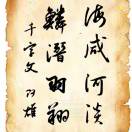 海咸河淡
鳞潜羽翔
千字文 羽雄